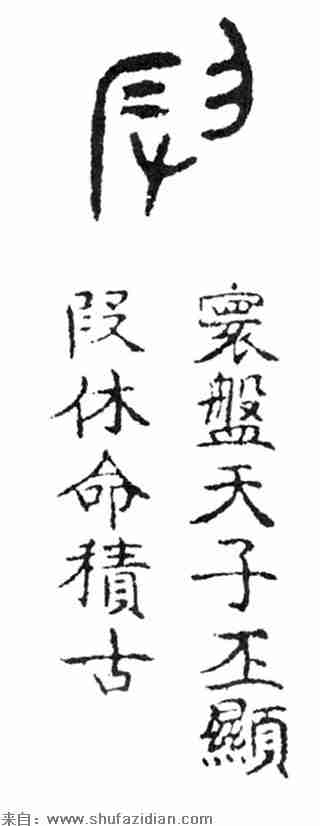 叚
寰盤天子丕顯
叚休命積古
来自：www.shufazidian.com